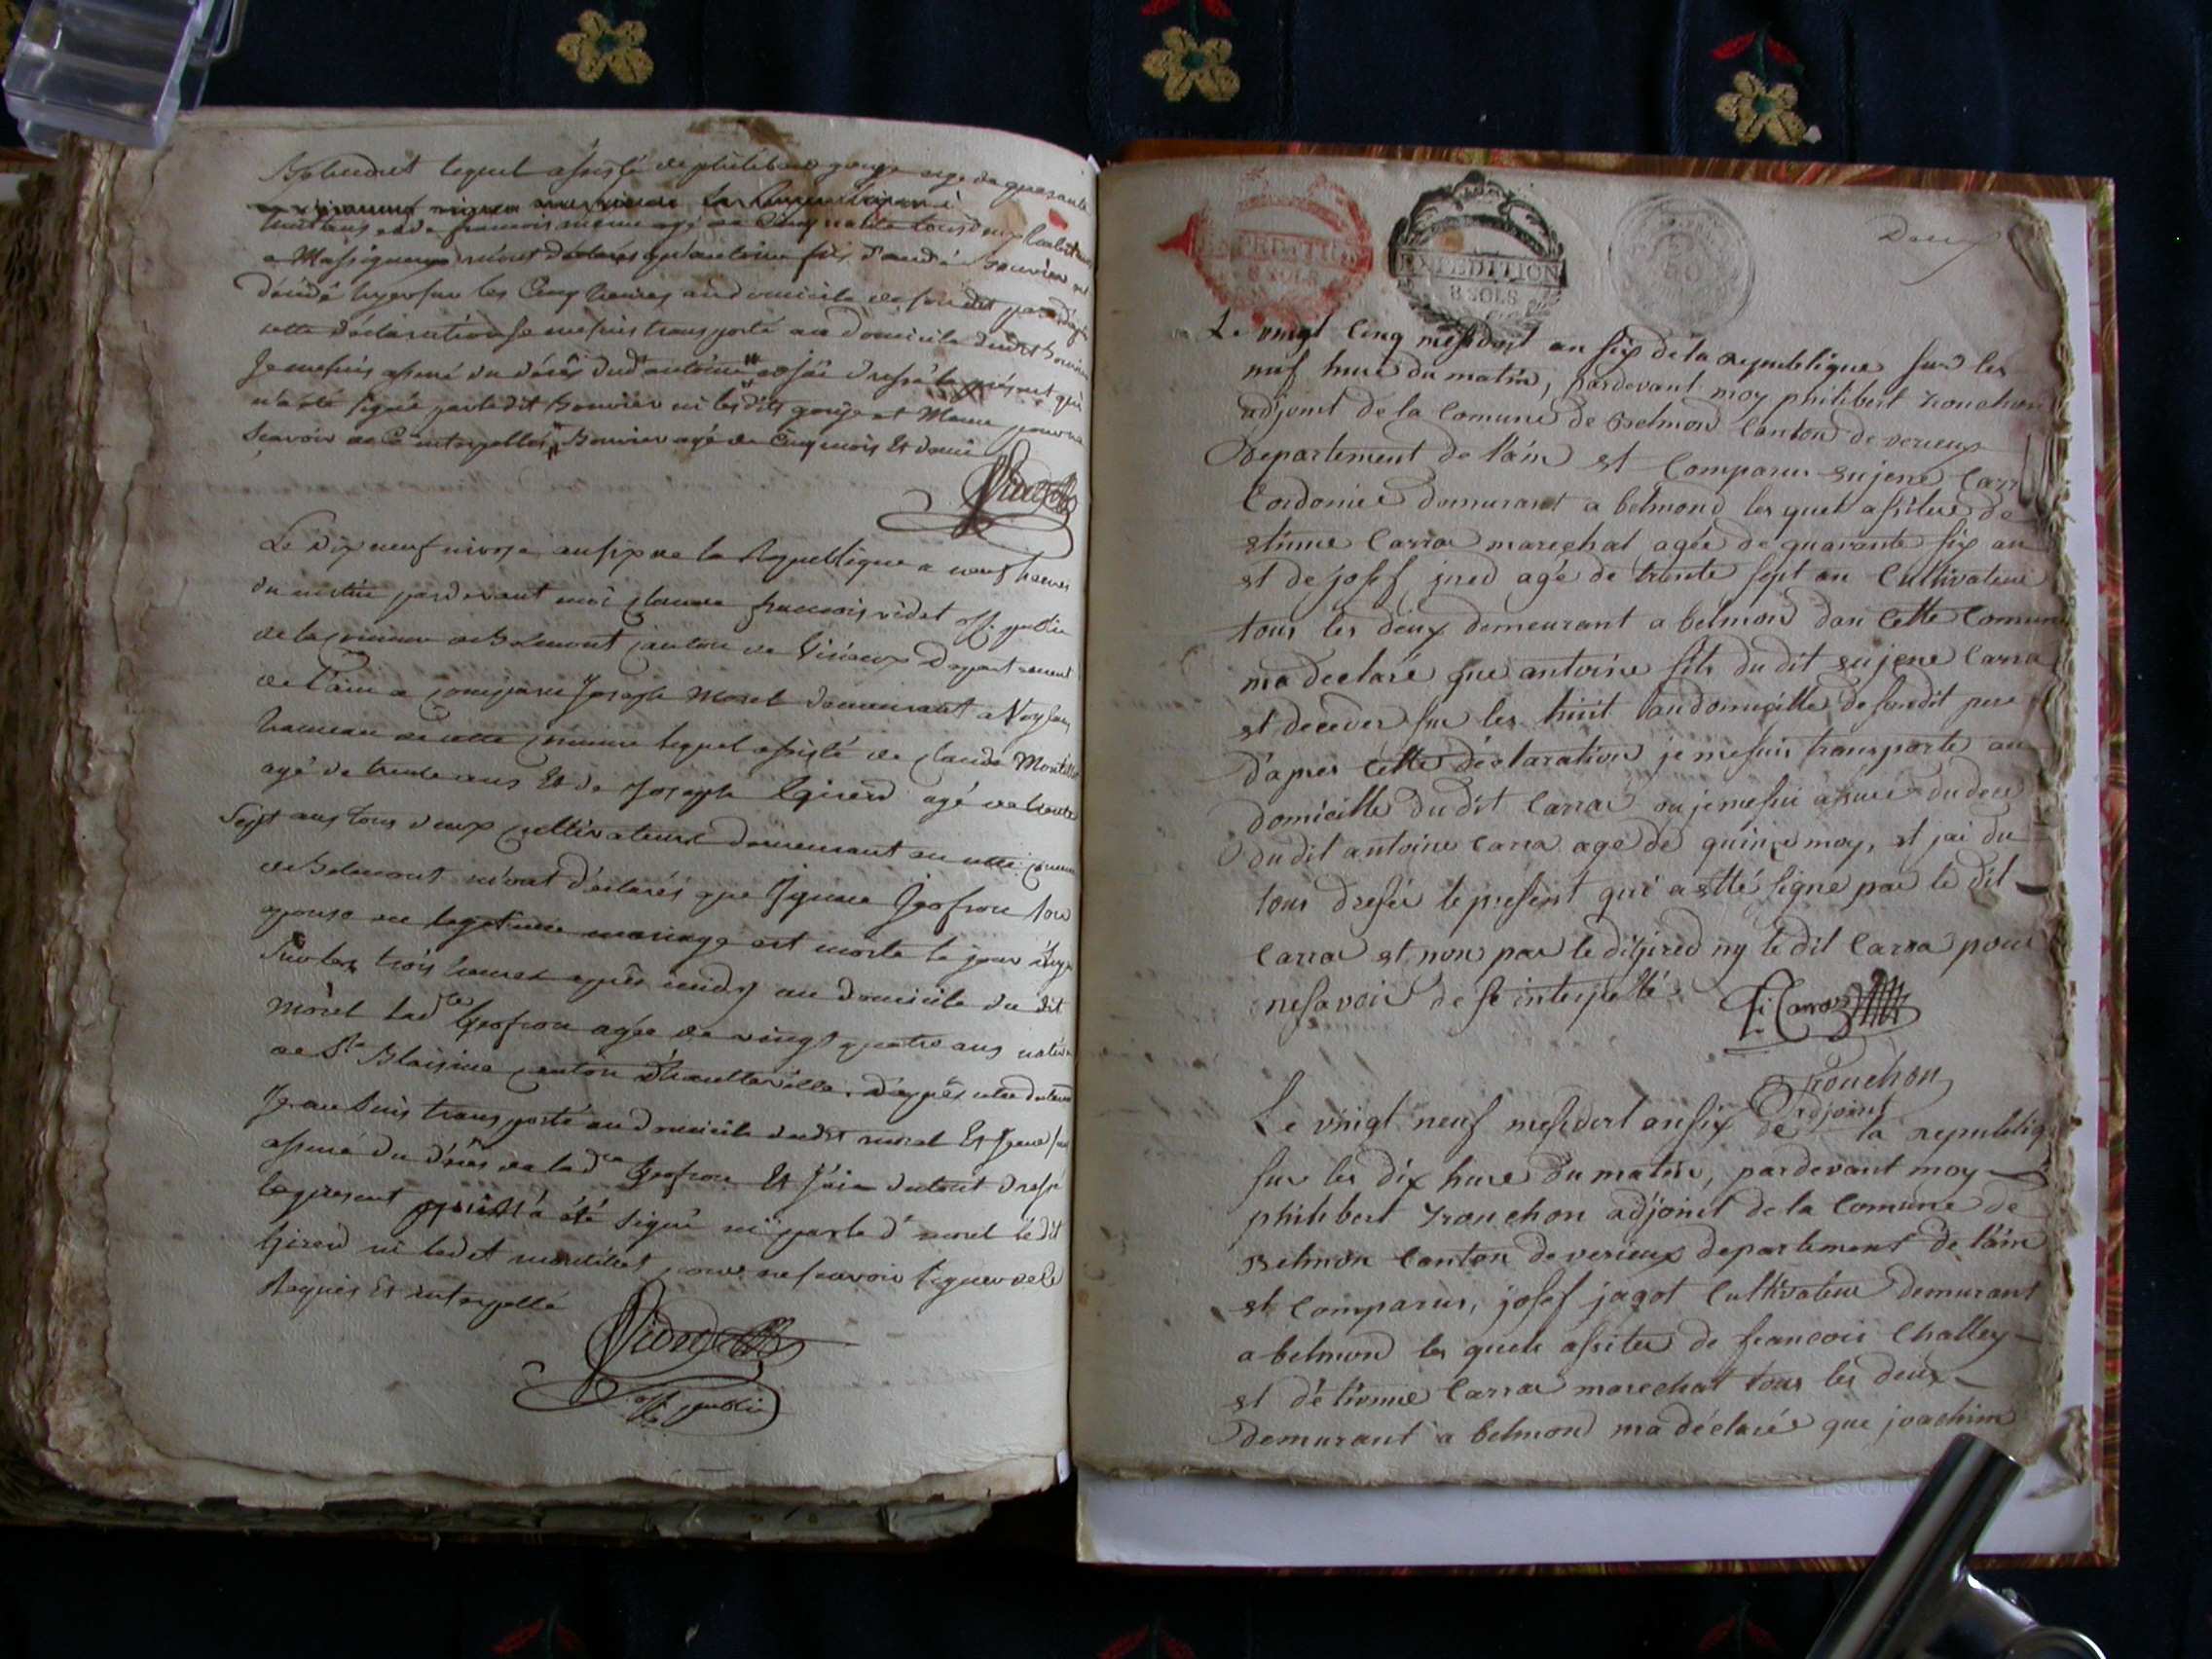 lequel assisté de philibert gonge age de quarante
huit ans et de francois meme agé de Cinquante tous deux habitant
a Massignieux m'ont déclarés qu'antoine fils d'andré bouvier est
décédé hyer sur les Cinq heures au domicile de son dit pere d'après
cette déclaration je me suis transporté au domicile dudit bouvier
Je me suis assuré du décès dudt antoine et j'ai dressé le présent qui
n'a été signé par ledit bouvier ni les dits gonge et Meme pour ne
scavoir de ce interpellés, Bouvier agé de Cinq mois Et demi
Videt
Le dix neuf nivose an six de la République a neuf heures
du matin pardevant moi Claude francois videt off. public
de la commune de Belmont canton de Virieux Departement
de l'ain a comparu Joseph Morel demeurant a
hameau de cette commune lequel assisté de Claude Montillet
agé de trente ans Et de Joseph Girerd agé de trente
Sept ans tous deux cultivateurs demeurant en cette commune
de Belmont m'ont déclarés que Geofrou son
epouse en legitime mariage est morte le jour d'hyer
Sur les trois heures après midy au domicile du dit
Morel lade Geofrou agée de vingt quatre ans native
de St Blaisine canton d'hauteville, d'après cette declaration
Je me suis transporté au domicile dudt morel Et Je me suis
assuré du décès de lade Geofrou Et J'ai du tout dressé
le present qui n'a été signé ni par led morel le dit
Girerd ni ledit montillet pour ne scavoir signer de ce
Requis Et interpellé
Videt
off. public
EXPEDITION
8 SOLS
EXPEDITION
8 SOLS
50
Deux
Le vingt Cinq messidort an six de la republique sur les
neuf hure du matin, pardevant moy philibert tronchon
adjoint de la Comune de Belmond Canton de verieux
Departement de l'ain et Comparus eujene Carra
Cordonier demurant a belmond les quel assites de
etinne Carra marechal agée de quarante six an
et de josef jred agé de trente sept an Cultivateur
tous les deux demeurant a belmond dan Cette Comune
ma declaré que antoine fils du dit eujene Carra
et decedes sur les huit au domicille de sondit pere
d'apres Cette déclaration je me suis transporte au
domicille du dit Carra ou je me sui assure du dece
du dit antoine Carra age de quinze moy, et jai du
tous dresér le present qui a etté signe par le dit
Carra et non par le dit jired ny le dit Carra pour
ne savoir de se interpellé
Carra
Tronchon
Adjoint
Le vingt neuf messidort an six de la republiq
sur les dix hure du matin, pardevant moy
philibert tronchon adjoint de la Comune de
Belmon Canton de verieux departement de l'ain
et Comparus, josef jagot Cultivateur demurant
a belmond les quels assites de francois Challey
et d'etinne Carra marechal tous les deux
demurant a belmond ma déclaré que joachim